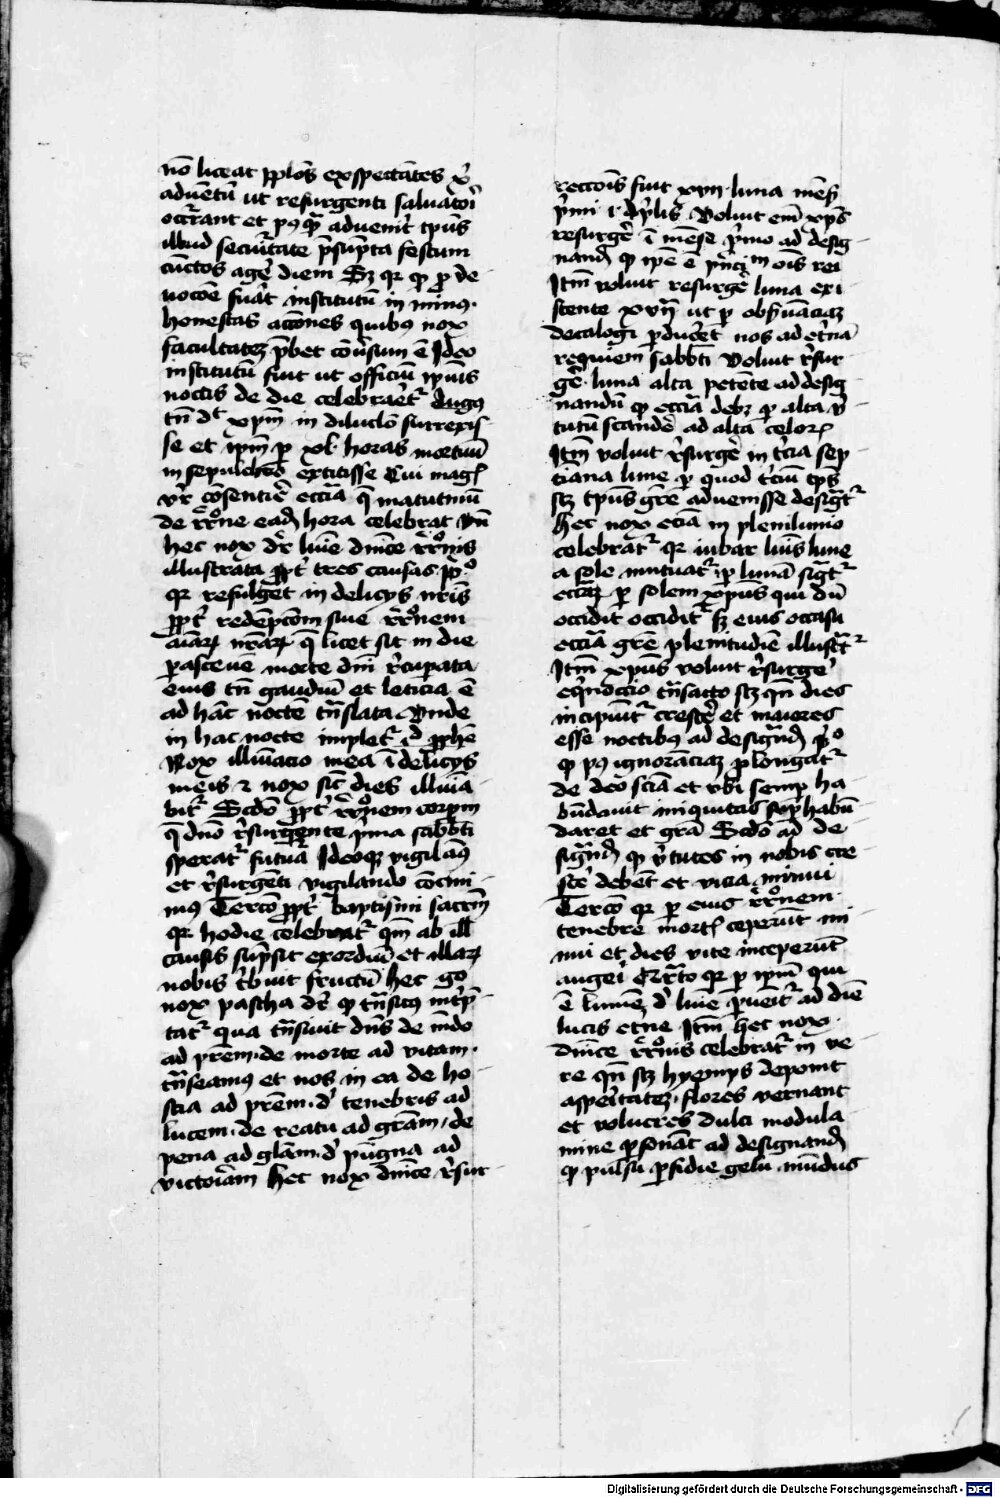 nō liceat pplōs expectātes x̄
aduētū ut resurgenti saluatori
occrrant et pꝰ qͣ aduenīt tp̄us
illud securitate p̄supta festum
cūctos agē diem Sꝫ qr ꝙ ꝓ de
uocōe fuāt institutū in minꝰ
honestas accōnes quibꝰ nox
facultateꝫ p̄bet cōusum ē Ideo
institutū fuit ut officiū ipīus
noctis de die celebraret Augꝰ
tn̄ dt xp̄m in diluclō surrexis
se et ip̄m ꝑ xl horas mortuū
in sepulchro extitisse Cui mag
vr̄ cōsentire eccīa q̄ matutinū
de rr̄one eadē hora celebrat Un̄
hec nox dr̄ luīe dnīce rr̄onis
illustrata ꝓpt tres causas pͦ
qr refulget in delicijs nrīs
ꝓpt redēpcōem siue rr̄onem
aīarꝝ nrārꝝ q̄ licet sit in die
ꝑasceue morte dnī rcupata
eius tn̄ gaudiū et leticia ē
ad hāc noctē tn̄slata Unde
in hac nocte impletr ꝓphē
Nox illuīacio mea ī delicijs
meis ⁊ nox sic dies illuīa
bitr Scdō ꝓpt rr̄onem corpm
q̄ dnō rsurgente pͥma sabbti
speratr futura Ideoqꝫ vigilāꝰ
et rsurgēti vigilando cōcini
mꝰ Tercō ꝓpt baptismi sacrm̄
qr hodie celebratr qm̄ ab ill
causis sūpsit exordiū et illarꝝ
nobis tbuit fructū Hec go
nox pascha dr̄ ꝙ tn̄sitꝰ intp̄
tatr qua tn̄siuit dn̄s de mūdo
ad prēm de morte ad vitam
tn̄seamꝰ et nos in ea de ho
stia ad prēm de tenebris ad
lucem de reatu ad grām de
pena ad glām de pugna ad
victoriam Hec nox dnīce rsur
reccois fuit xvii luna mens̄
pͥmi i aplis Voluit em̄ xp̄s
resurge ī mēse pͥmo ad desig
nand ꝙ ip̄e ē pͥncim oīs rei
Itm̄ voluit resurgē luna exi
stente xvij ut ꝑ obsuāciaꝫ
decalogi ꝑducēt nos ad etnā
requiem sabbti Voluit rsur
gē luna alta petēte ad desig
nandū ꝙ eccīa debꝫ ꝙ alta v
tutū scandē ad alta celorꝝ
Itm̄ voluit rsurgē in tcia sep
tiana lune ꝙ quod tciū tp̄s
scꝫ tp̄us grē aduenisse desigtr
Hec nox eciā in plenilunio
celebratr qr iubar lūis lune
a sole mutuatr ꝑ lunā sigtr
eccīa ꝑ solem xp̄us qui dū
occidit occiditr sꝫ eius occasu
eccīa grē plenitudiē illustr
Itm̄ xp̄us voluit rsurge
eqͥnoctio tn̄sacto scꝫ qn̄ dies
incipiūt crescē et maiores
esse noctibꝰ ad designd pͦ
ꝙ pꝰ ignorāciaꝫ plongatr
de deo sciā et vbi semp ha
būdauit iniquitas suphabū
daret et grā Scdo ad de
signd ꝙ vtutes in nobis cre
scē debēt et vicia minui
Tercō qr ꝑ eius rr̄onem
tenebre mort ceperūt mi
nui et dies vite inceperūt
augeri Qrto qr ꝑ ip̄m qui
ē lumē de luīe puēitr ad diē
lucis etne Itm̄ Hec nox
dnīce rr̄onis celebratr in ve
re qn̄ scꝫ hyemps deponit
aspertateꝫ flores vernant
et volucres dulci modula
mine ꝑsonāt ad designand
ꝙ pulsu ꝑfidie gelu mūdus
Digitalisierung gefördert durch die Deutsche Forschungsgemeinschaft - DFG